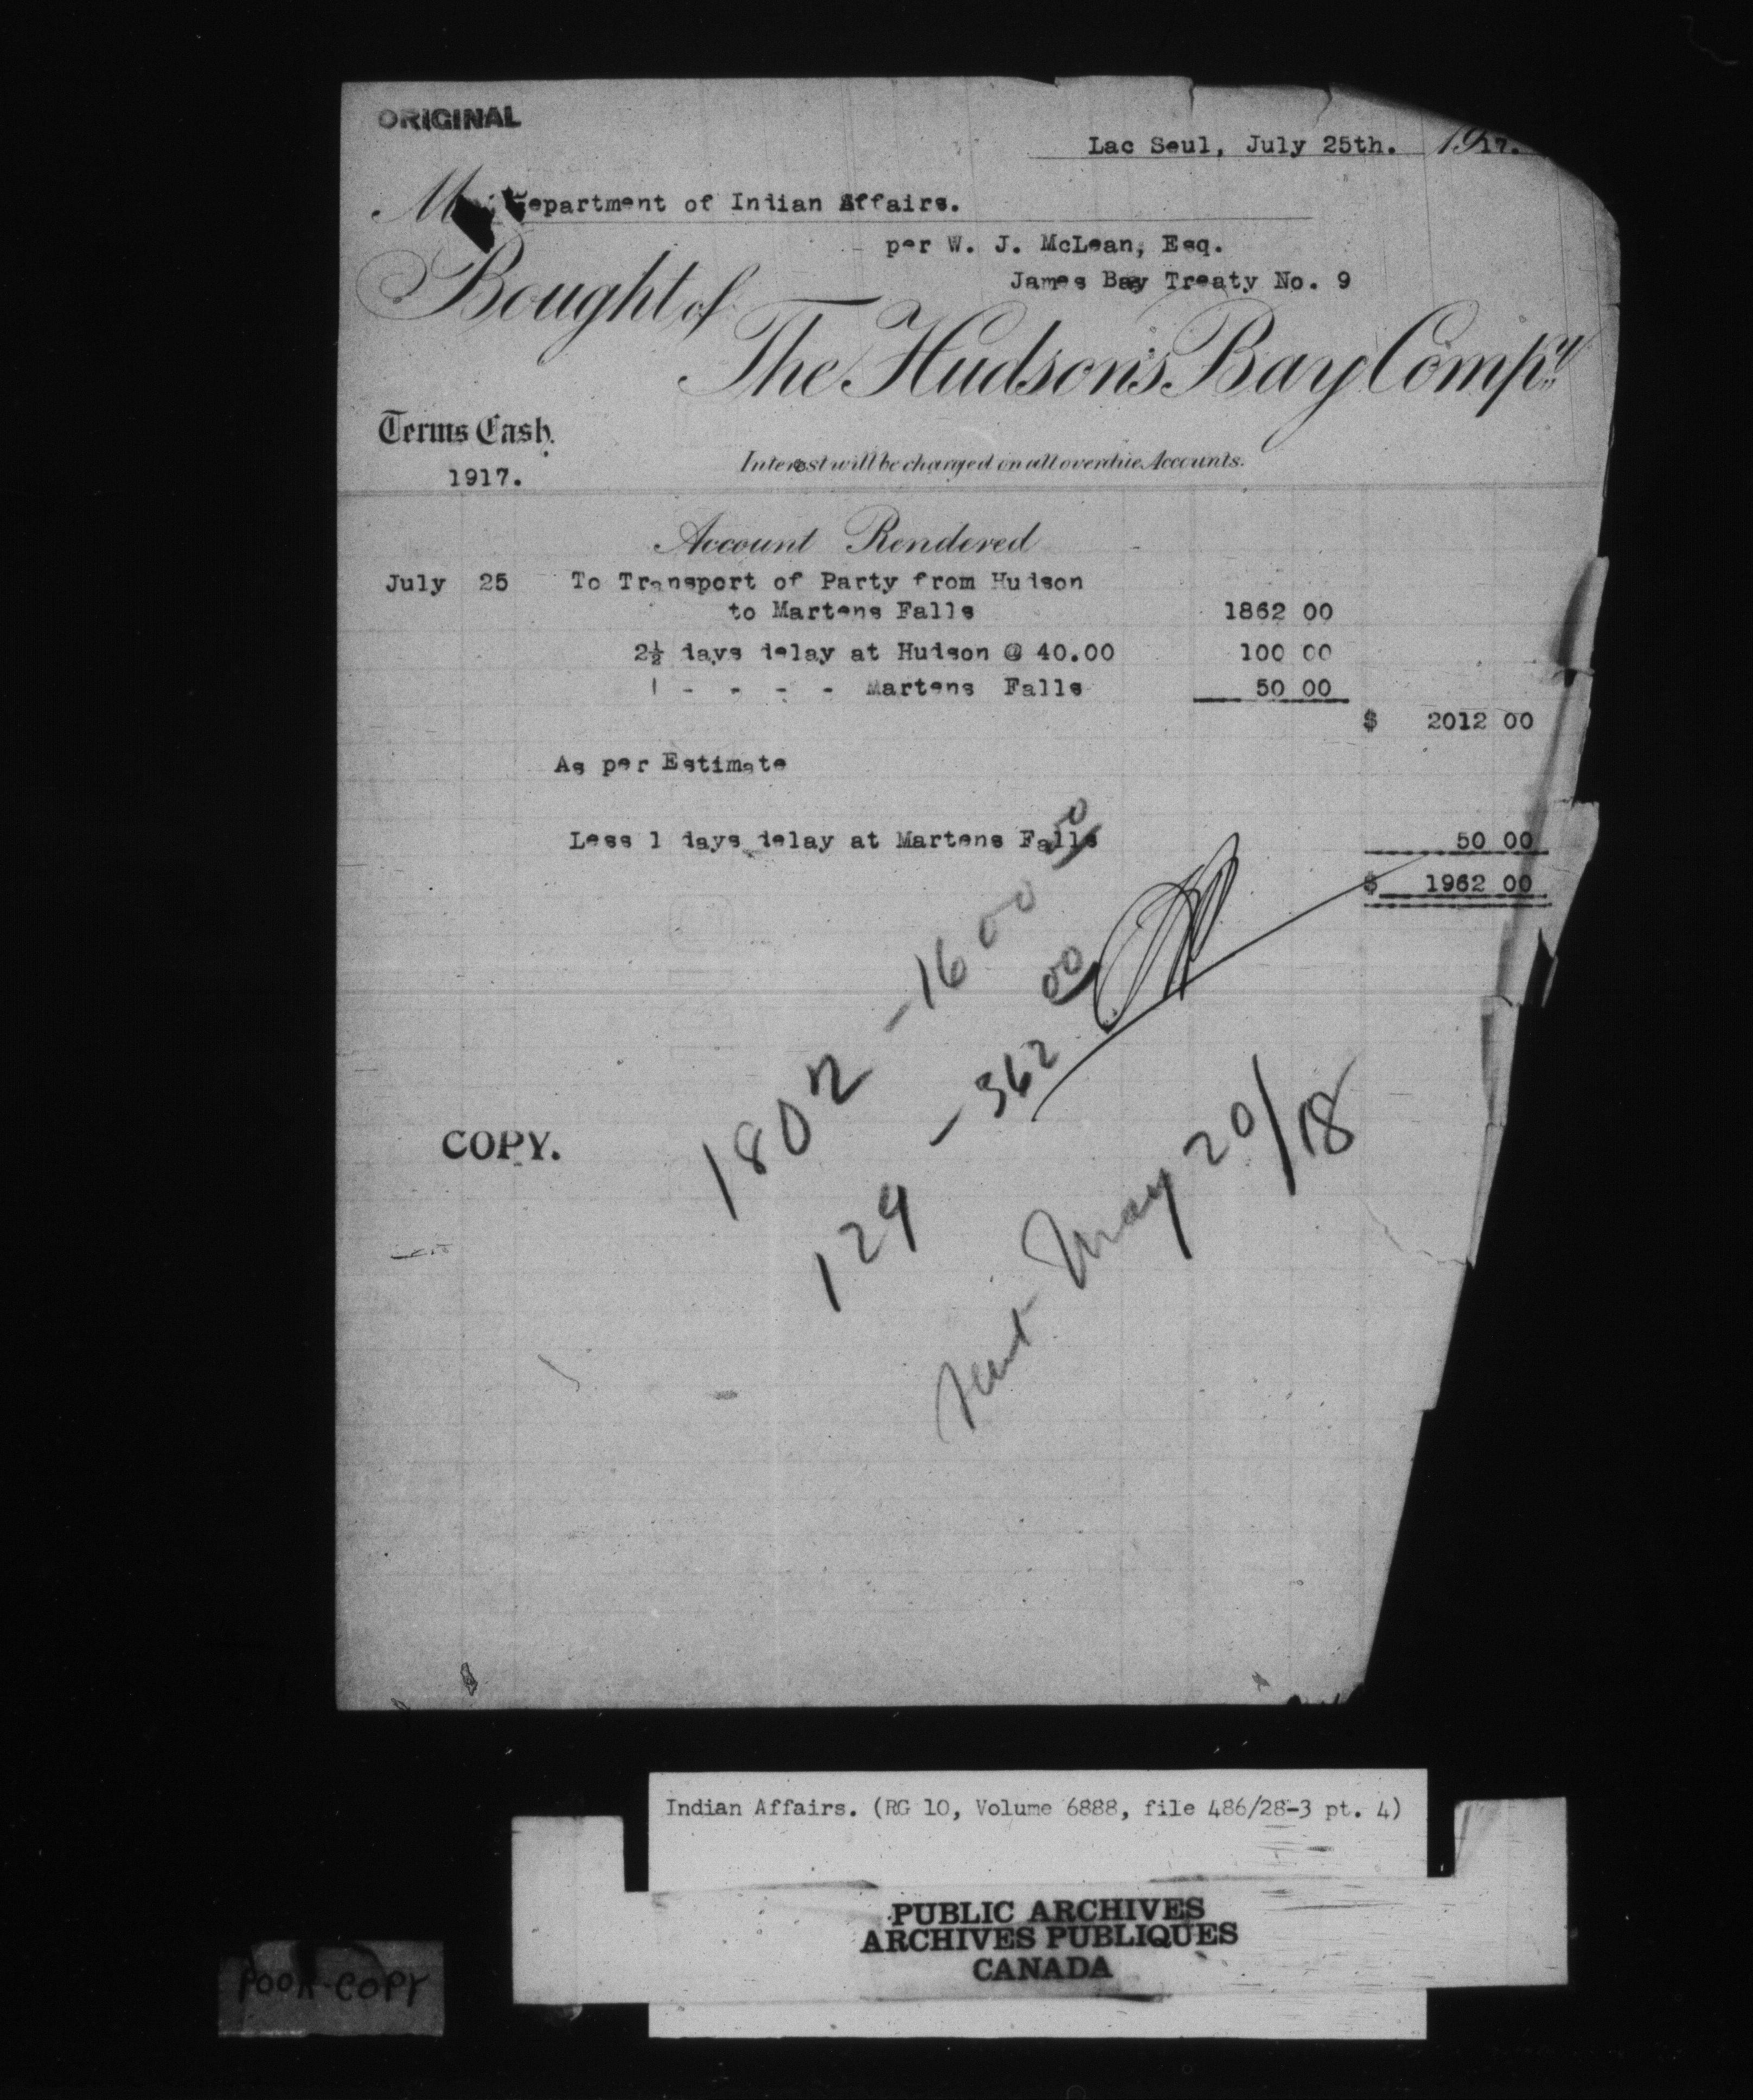 ORIGINAL
Lac Seul, July 25th. 1917.
M Department of Indian Affairs.
per W. J. McLean, Esq.
James Bay Treaty No. 9
Bought of
The Hudson's Bay Compy.
Terms Cash.
Interest will be charged on all overdue Accounts.
1917.
Account Rendered
July 25 To Transport of Party from Hudson
to Martens Falls 1862 00
2½ days delay at Hudson @ 40.00 100 00
1 - - - - Martens Falls 50 00
$ 2012 00
As per Estimate
Less 1 days delay at Martens Falls 50 00
$ 1962 00
1802 - 1600 00
129 - 362 00
COPY.
Sent May 20/18
Indian Affairs. (RG 10, Volume 6888, file 486/28-3 pt. 4)
PUBLIC ARCHIVES
ARCHIVES PUBLIQUES
CANADA
POOR COPY